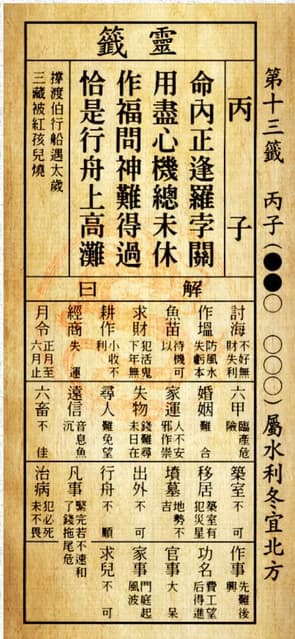 第十三籤 丙子(●●○ ○○○)屬水利冬宜北方
靈籤
丙子
命內正逢羅孛關
用盡心機總未休
作福問神難得過
恰是行舟上高灘
撐渡伯行船遇太歲
三藏被紅孩兒燒
解曰
討海 不好無財失利
作塭 防風水失虧本
魚苗 待機可以
求財 犯活鬼下年無
耕作 小收不利
經商 失運
月令 正月至六月止
六甲 臨產危險
婚姻 難合
家運 人不安邪作崇
失物 錢難尋未日在
尋人 難免望
遠信 音息魚沉
六畜 不佳
築室 不可
移居 築室有犯災星
墳墓 地勢不吉
出外 不可
行舟 不順
凡事 緊完若不速和了錢拖尾危
治病 犯必死未不畏
作事 先難後興
功名 費工望後得進
官事 大呆
家事 門庭起風波
求兒 不可